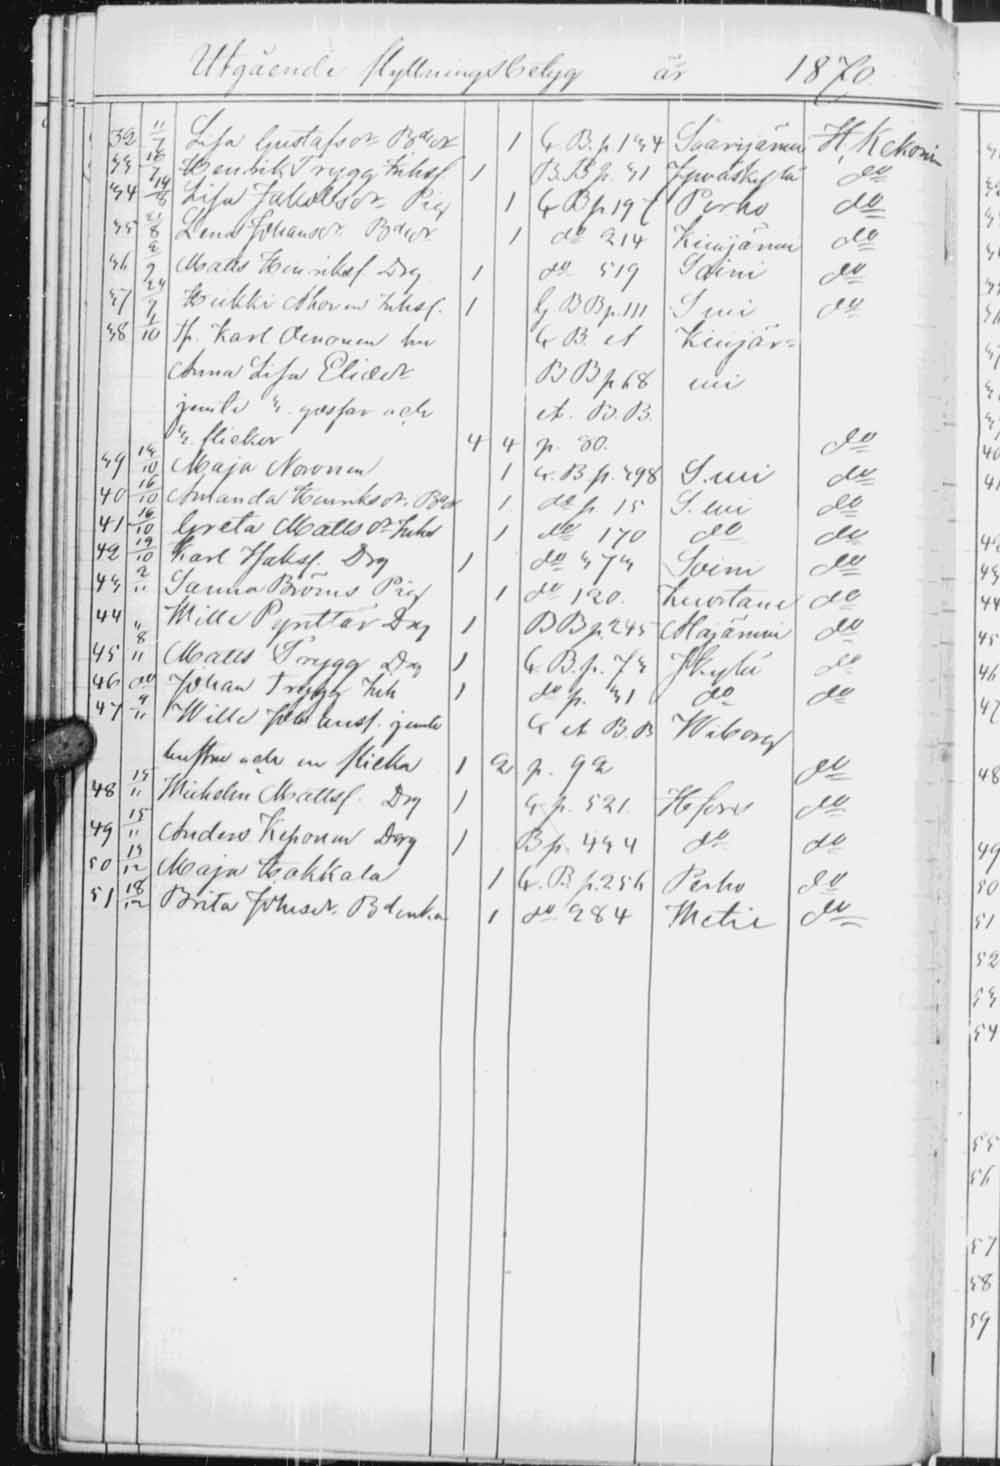 Utgående flyttningsbetyg år 1870.
32 11/7 Lisa Gustafsdr Bddr 1 G. B. p. 134 Saarijärvi H. Kekonin
33 18/7 Henrik Trygg Inhsf 1 B. B p. 31 Jyväskylä do
34 14/8 Lisa Jakobsdr Pig 1 G B p 197 Perho do
35 21/8 Lena Johansdr Bddr 1 do 214 Kivijärvi do
36 2/9 Matts Henriksf. Drg 1 do 319 Soini do
37 24/9 Heikki Ahonen Inhsf. 1 G B B p. 111 S. ini do
38 1/10 Karl Oinonen hu G B. et Kivijär=
Anna Lisa Eliædr B B p 68 vi
jemte 3. gossar och et. B. B.
3. flickor 4 4 p. 80. do
39 14/10 Maja Noronen 1 G. B p. 398 S. ini do
40 16/10 Amanda Henriksdr. Bddr 1 do p 15 S. ini do
41 16/10 Greta Mattsdr Inhs 1 do 170 do do
42 19/10 Karl Isaksf. Drg 1 do 373 Soini do
43 2/11 Sanna Bröms Pig 1 do 120. Kuortane do
44 " Wille Pynttär Drg 1 B B p. 245 Alajärvi do
45 8/11 Matts Trygg Drg 1 G. B. p. 73 Jkylä do
46 do Johan Trygg Inh 1 do p. 31 do do
47 9/11 Wille Johansf. jemte G et B. B Wiborg
hustru och en flicka 1 2 p. 92 do
48 15/11 Wilhelm Mattsf. Drg 1 G p. 521. Hfors do
49 15/11 Anders Keponen Drg 1 B p. 434 do do
50 13/12 Maja Hakkala 1 G. B. p. 256 Perho do
51 18/12 Brita Johsdr. Bdenka 1 do 284 Wetil do